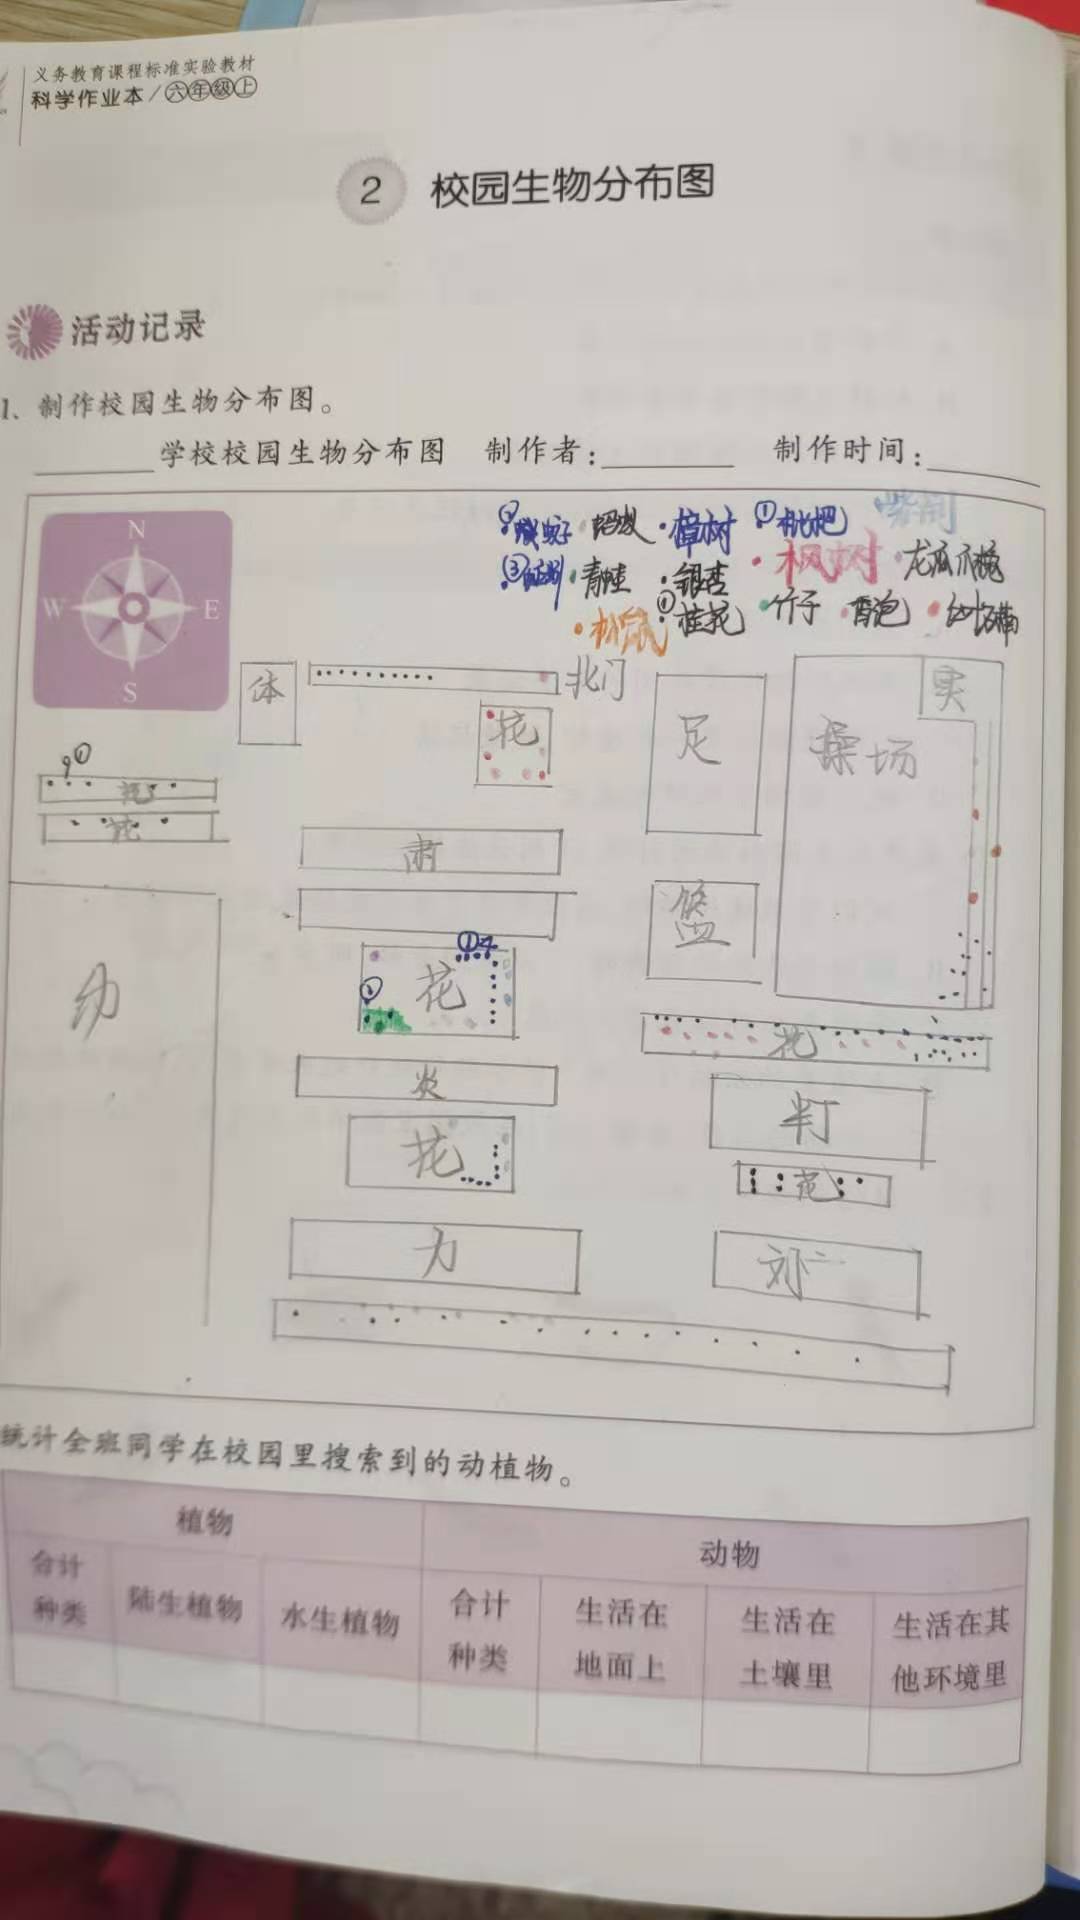 义务教育课程标准实验教材
科学作业本/六年级上
2 校园生物分布图
活动记录
1、制作校园生物分布图。
学校校园生物分布图 制作者： 制作时间：
N
W E
S
蚂蚁 樟树 ① 枇杷
③ 青蛙 银杏 枫树 龙爪槐
松鼠 桂花 竹子
体 北门 实
花 足 操场
①
花
花
篮
幼
花 ①4
花
炎
花
力
统计全班同学在校园里搜索到的动植物。
植物 动物
合计种类 陆生植物 水生植物 合计种类 生活在地面上 生活在土壤里 生活在其他环境里